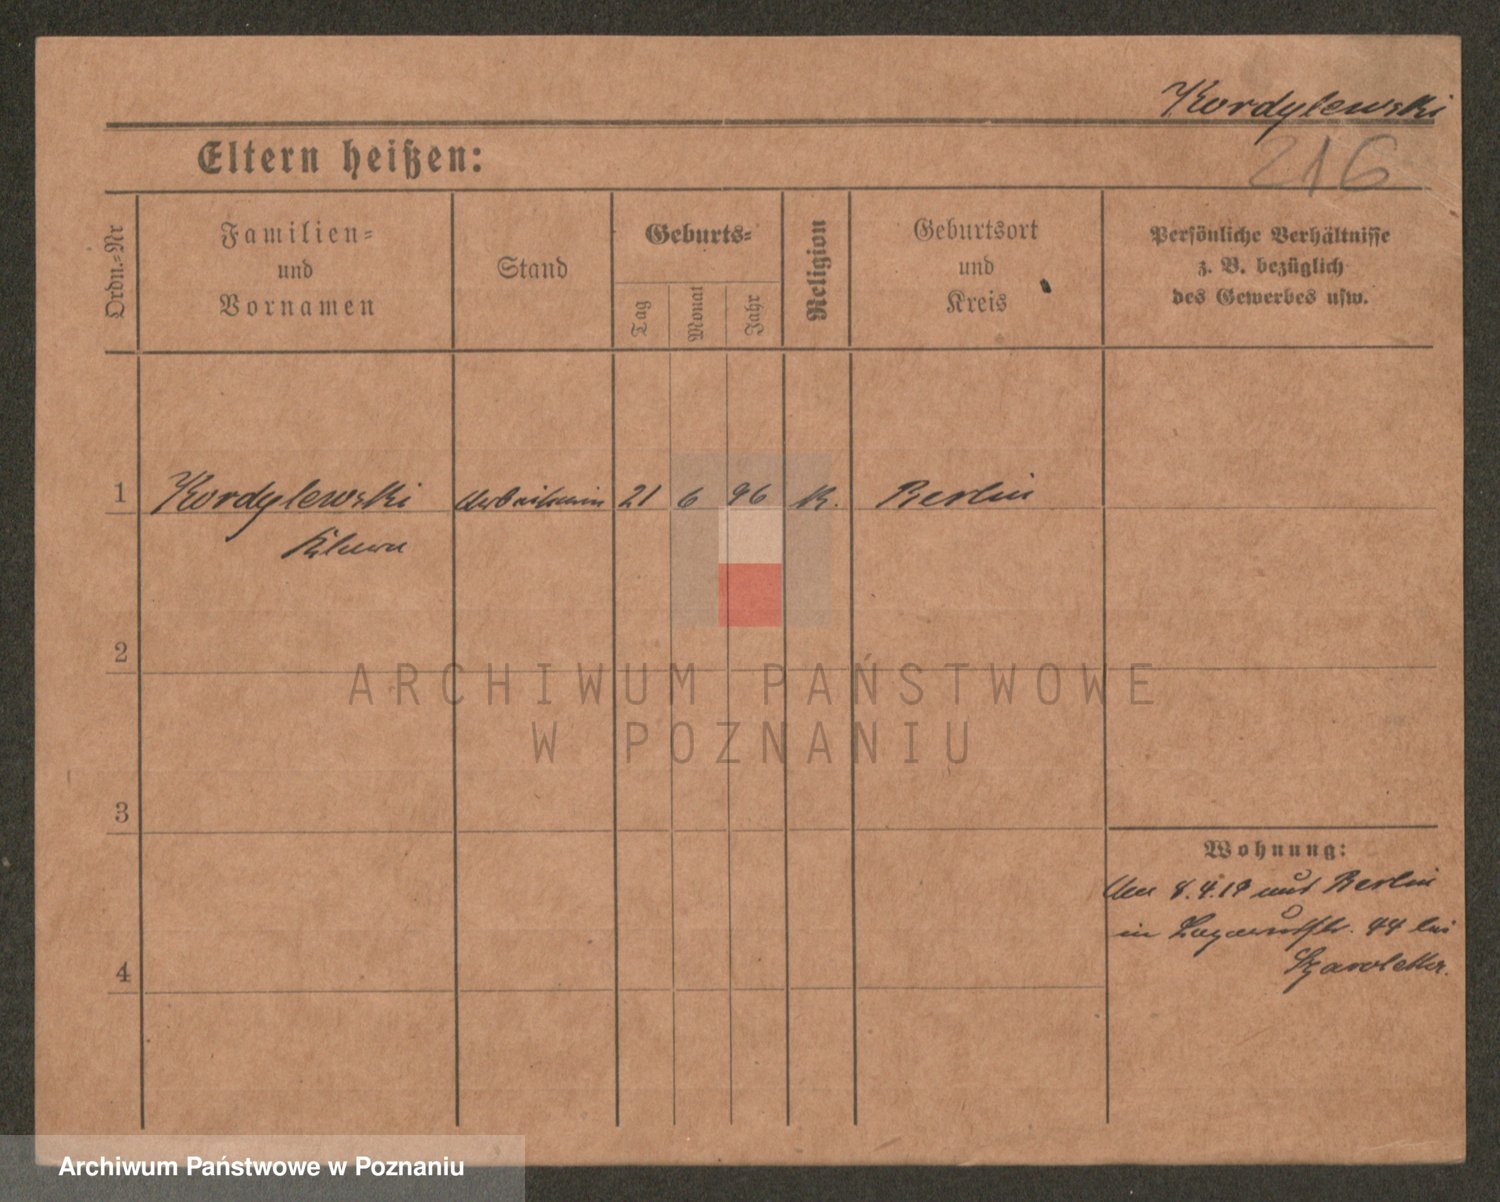 Kordylewski
216
Eltern heißen:
Ordn.=Nr
Familien=
und
Vornamen
Stand
Geburts=
Tag
Monat
Jahr
Religion
Geburtsort
und
Kreis
Persönliche Verhältnisse
z. B. bezüglich
des Gewerbes usw.
1 Kordylewski Arbeiterin 21 6 96 K. Berlin
Klara
2
3
4
Wohnung:
Am 8.4.19 aus Berlin
in 44 bei
ARCHIWUM PAŃSTWOWE
W POZNANIU
Archiwum Państwowe w Poznaniu